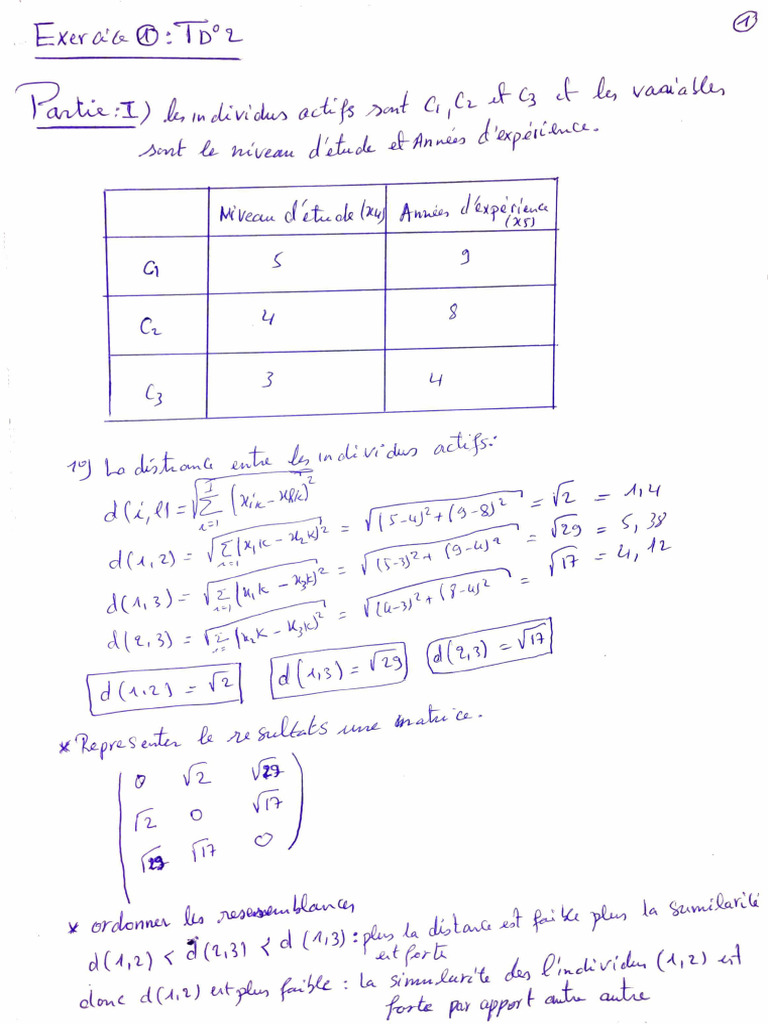 Exercice ① : TD°2
①
Partie : I) les individus actifs sont C1, C2 et C3 et les variables
sont le niveau d'étude et Années d'expérience.
Niveau d'étude (x4) Années d'expérience (x5)
C1 5 9
C2 4 8
C3 3 4
1°) La distance entre les individus actifs:
d(i,l) = √∑(xik - xlk)²
d(1,2) = √∑(x1k - x2k)² = √(5-4)²+(9-8)² = √2 = 1,4
d(1,3) = √∑(x1k - x3k)² = √(5-3)²+(9-4)² = √29 = 5,38
d(2,3) = √∑(x2k - x3k)² = √(4-3)²+(8-4)² = √17 = 4,12
d(1,2) = √2 d(1,3) = √29 d(2,3) = √17
* Representer le resultats une matrice.
0 √2 √29
√2 0 √17
√29 √17 0
* ordonner les ressemblances
d(1,2) < d(2,3) < d(1,3) : plus la distance est faible plus la sumilarité
est forte
donc d(1,2) est plus faible : la simularite des l'individus (1,2) est
forte par apport autre autre